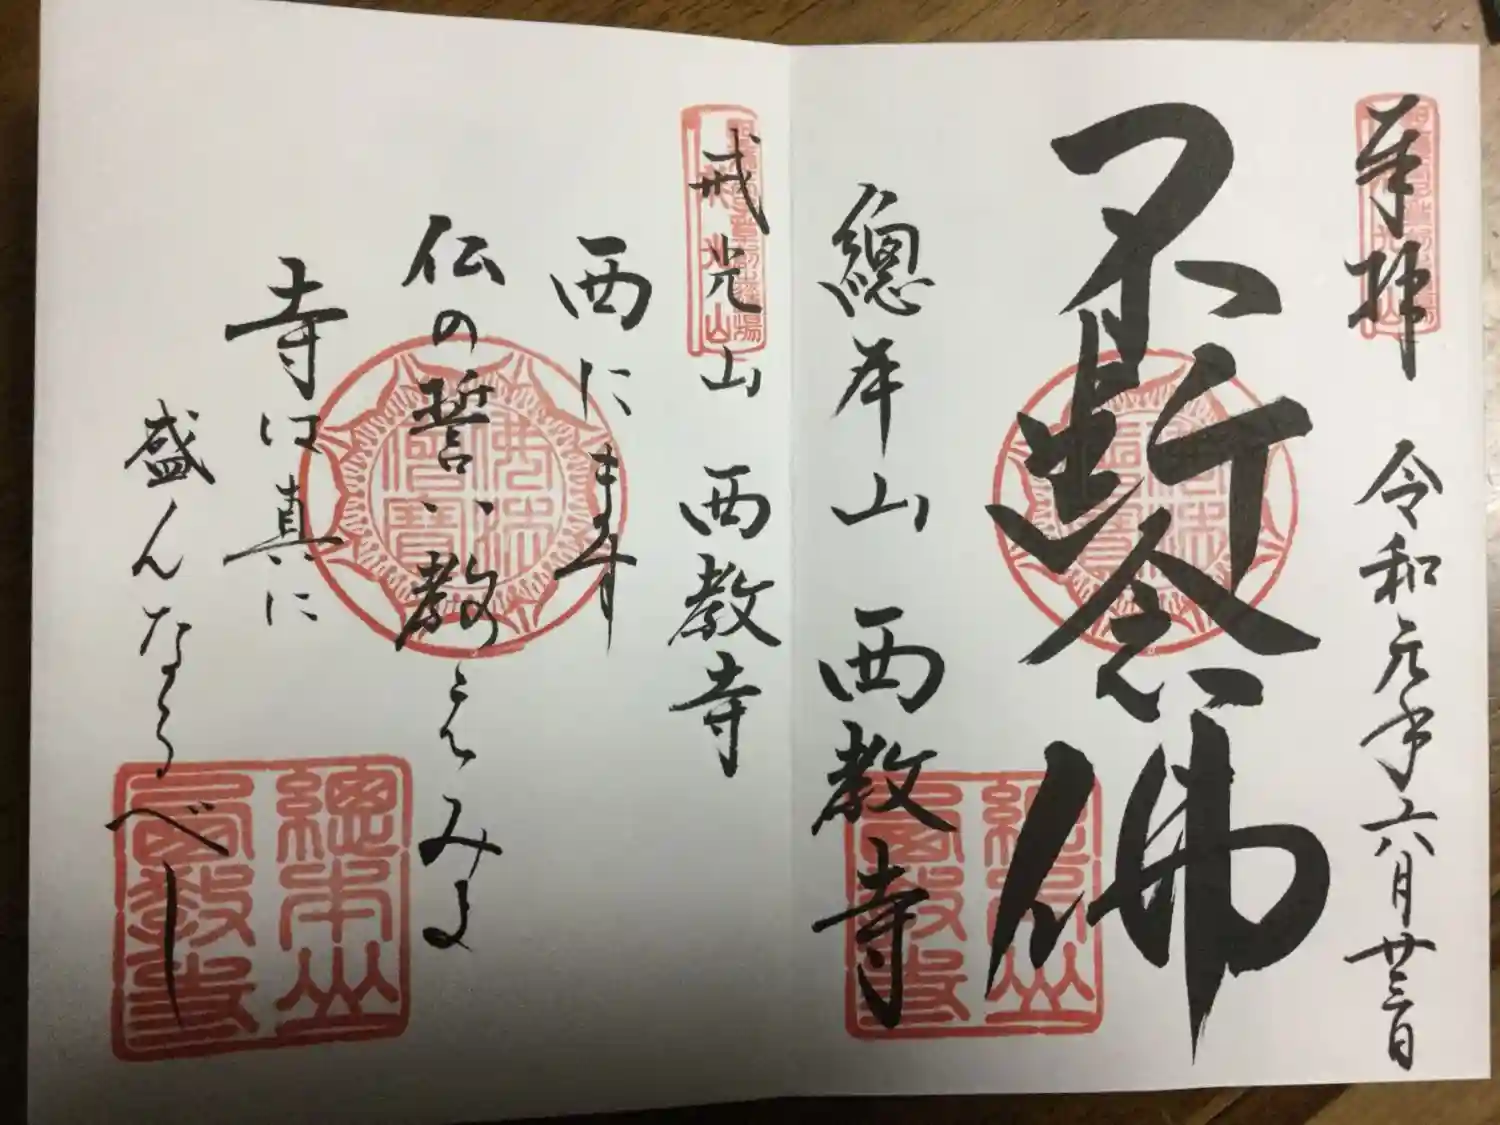 奉拝　令和元年六月廿三日
不断念佛
總本山　西教寺
佛法
僧寶
總本山
西教寺
戒光山　西教寺
西にます
仏の誓い教えみよ
寺は真に
盛んなるべし
佛法
僧寶
總本山
西教寺